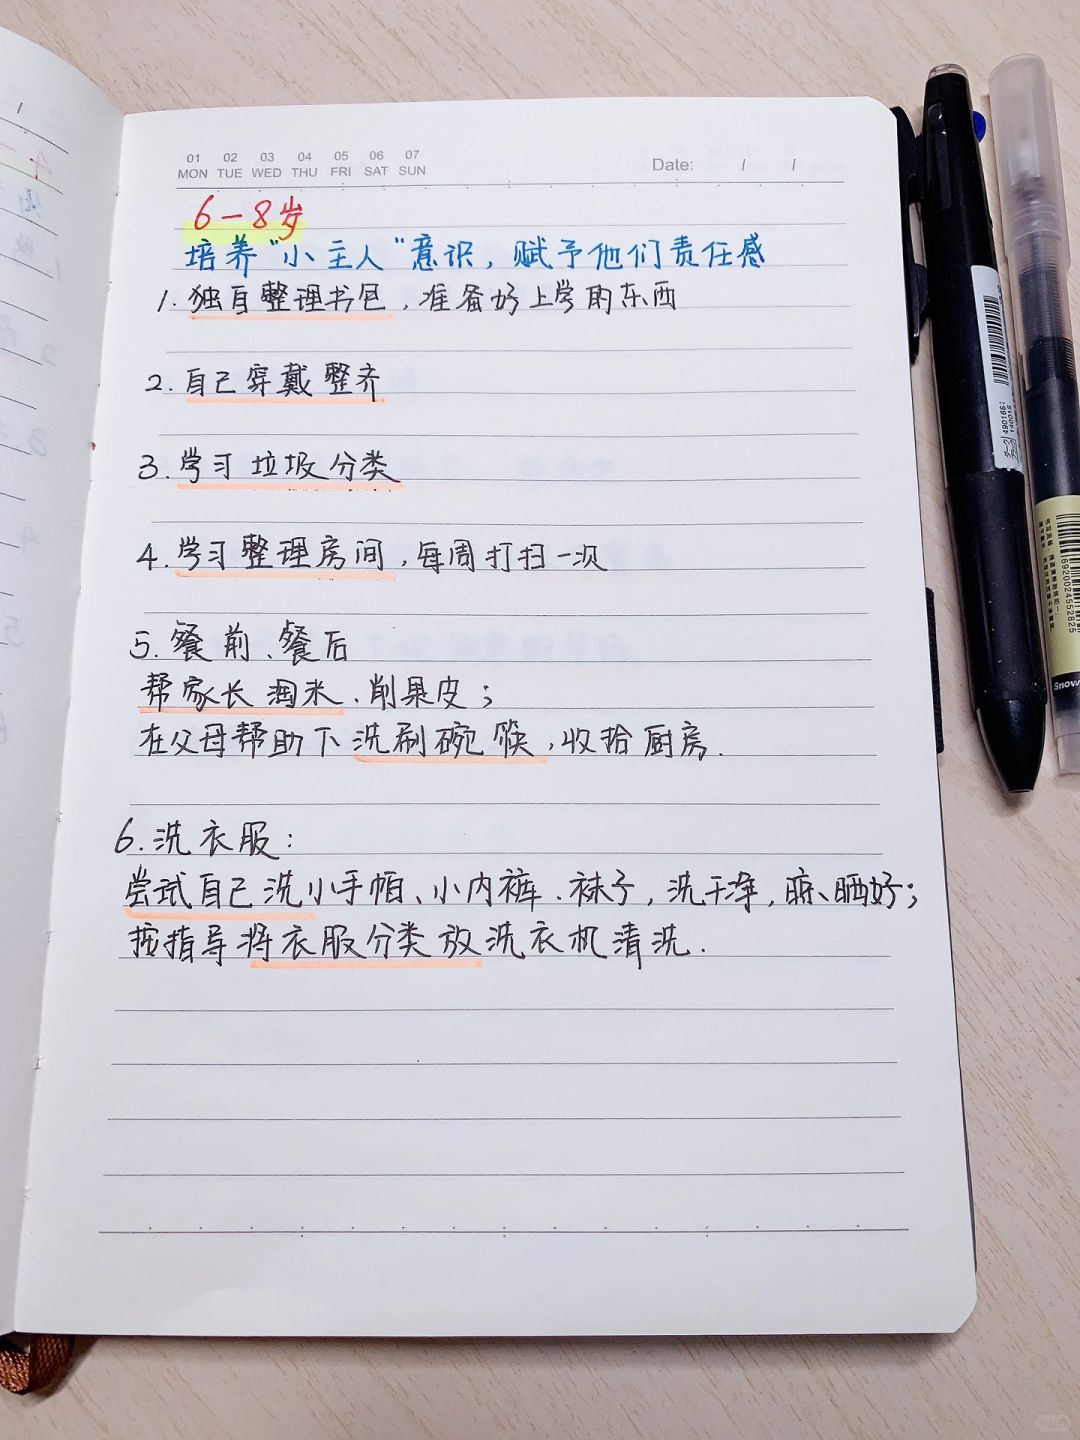 01 02 03 04 05 06 07
MON TUE WED THU FRI SAT SUN
Date: / /
6-8岁
培养"小主人"意识，赋予他们责任感
1. 独自整理书包，准备好上学用东西
2. 自己穿戴整齐
3. 学习垃圾分类
4. 学习整理房间，每周打扫一次
5. 餐前、餐后
帮家长淘米、削果皮；
在父母帮助下洗刷碗筷，收拾厨房.
6. 洗衣服：
尝试自己洗小手帕、小内裤、袜子，洗干净，晾、晒好；
按指导将衣服分类放洗衣机清洗.
490166
14001S
6920024552825
Snow